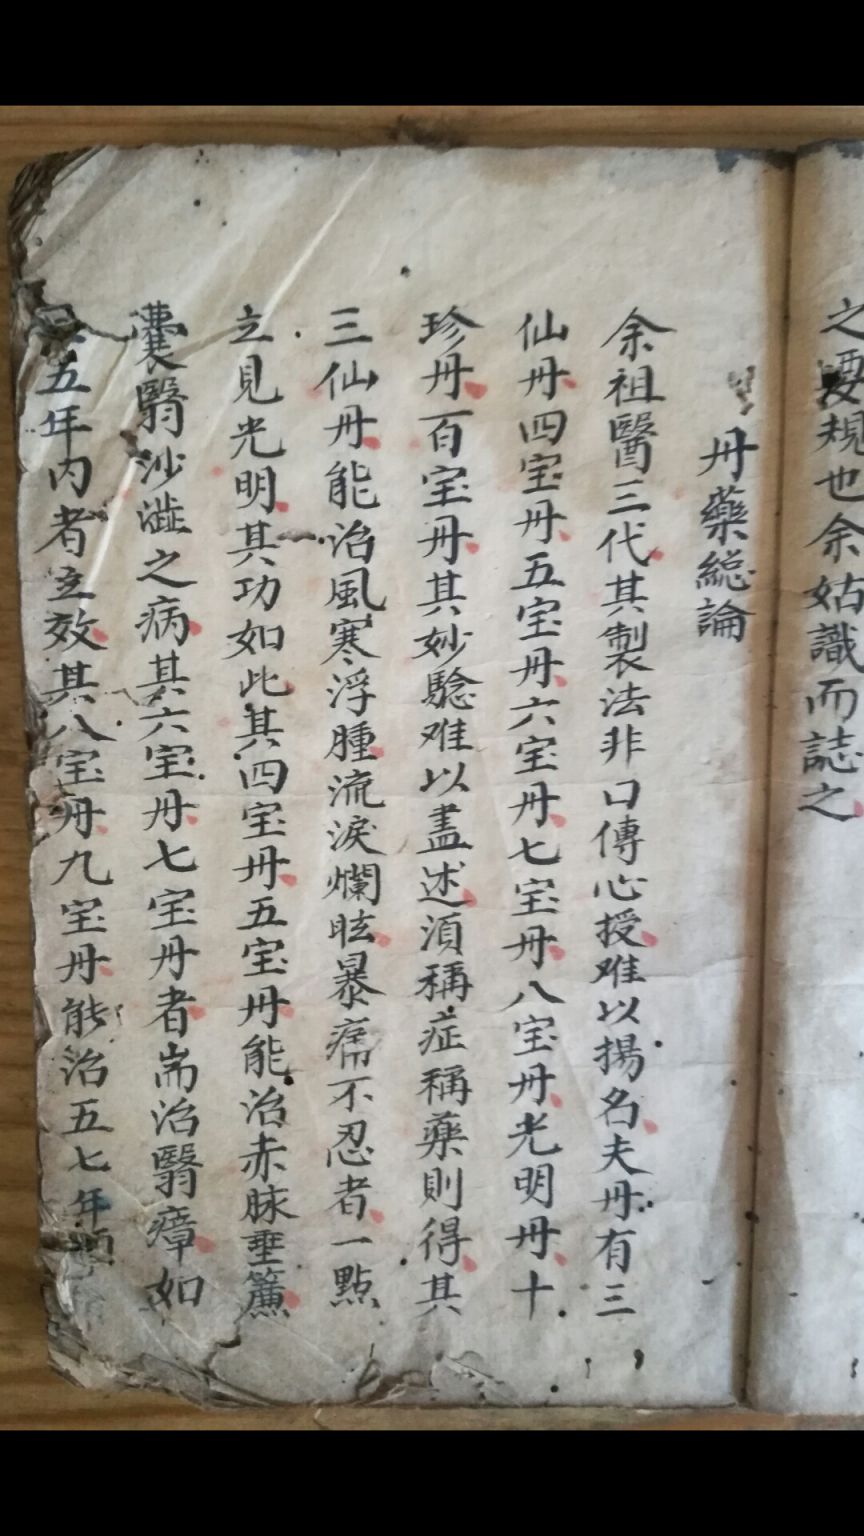 之規也余姑識而誌之
丹藥総論
余祖醫三代其製法非口傳心授难以揚名夫丹有三
仙丹四宝丹五宝丹六宝丹七宝丹八宝丹光明丹十
珍丹百宝丹其妙騐难以盡述湏稱症稱藥則得其
三仙丹能治風寒浮腫流淚爛眩暴痛不忍者一點
立見光明其功如此其四宝丹五宝丹能治赤脉垂簾
瀼翳沙澁之病其六宝丹七宝丹者耑治翳瘴如
五年内者立效其八宝丹九宝丹能治五七年